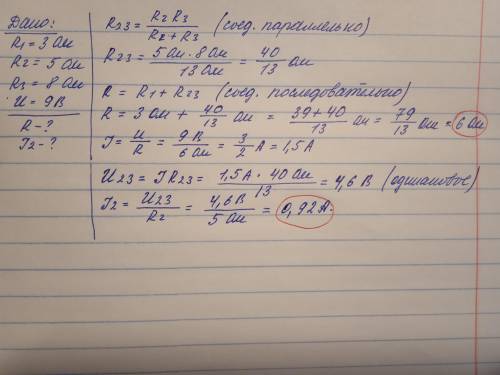 Дано:
R₁ = 3 Ом
R₂ = 5 Ом
R₃ = 8 Ом
U = 9В
R - ?
I₂ - ?
R₂₃ = R₂ R₃ / R₂ + R₃ (соед. параллельно)
R₂₃ = 5 Ом · 8 Ом / 13 Ом = 40 / 13 Ом
R = R₁ + R₂₃ (соед. последовательно)
R = 3 Ом + 40 / 13 Ом = 39 + 40 / 13 Ом = 79 / 13 Ом = 6 Ом
I = U / R = 9 В / 6 Ом = 3 / 2 А = 1,5 А
U₂₃ = I R₂₃ = 1,5 А · 40 Ом / 13 = 4,6 В (одинаковое)
I₂ = U₂₃ / R₂ = 4,6 В / 5 Ом = 0,92 А.